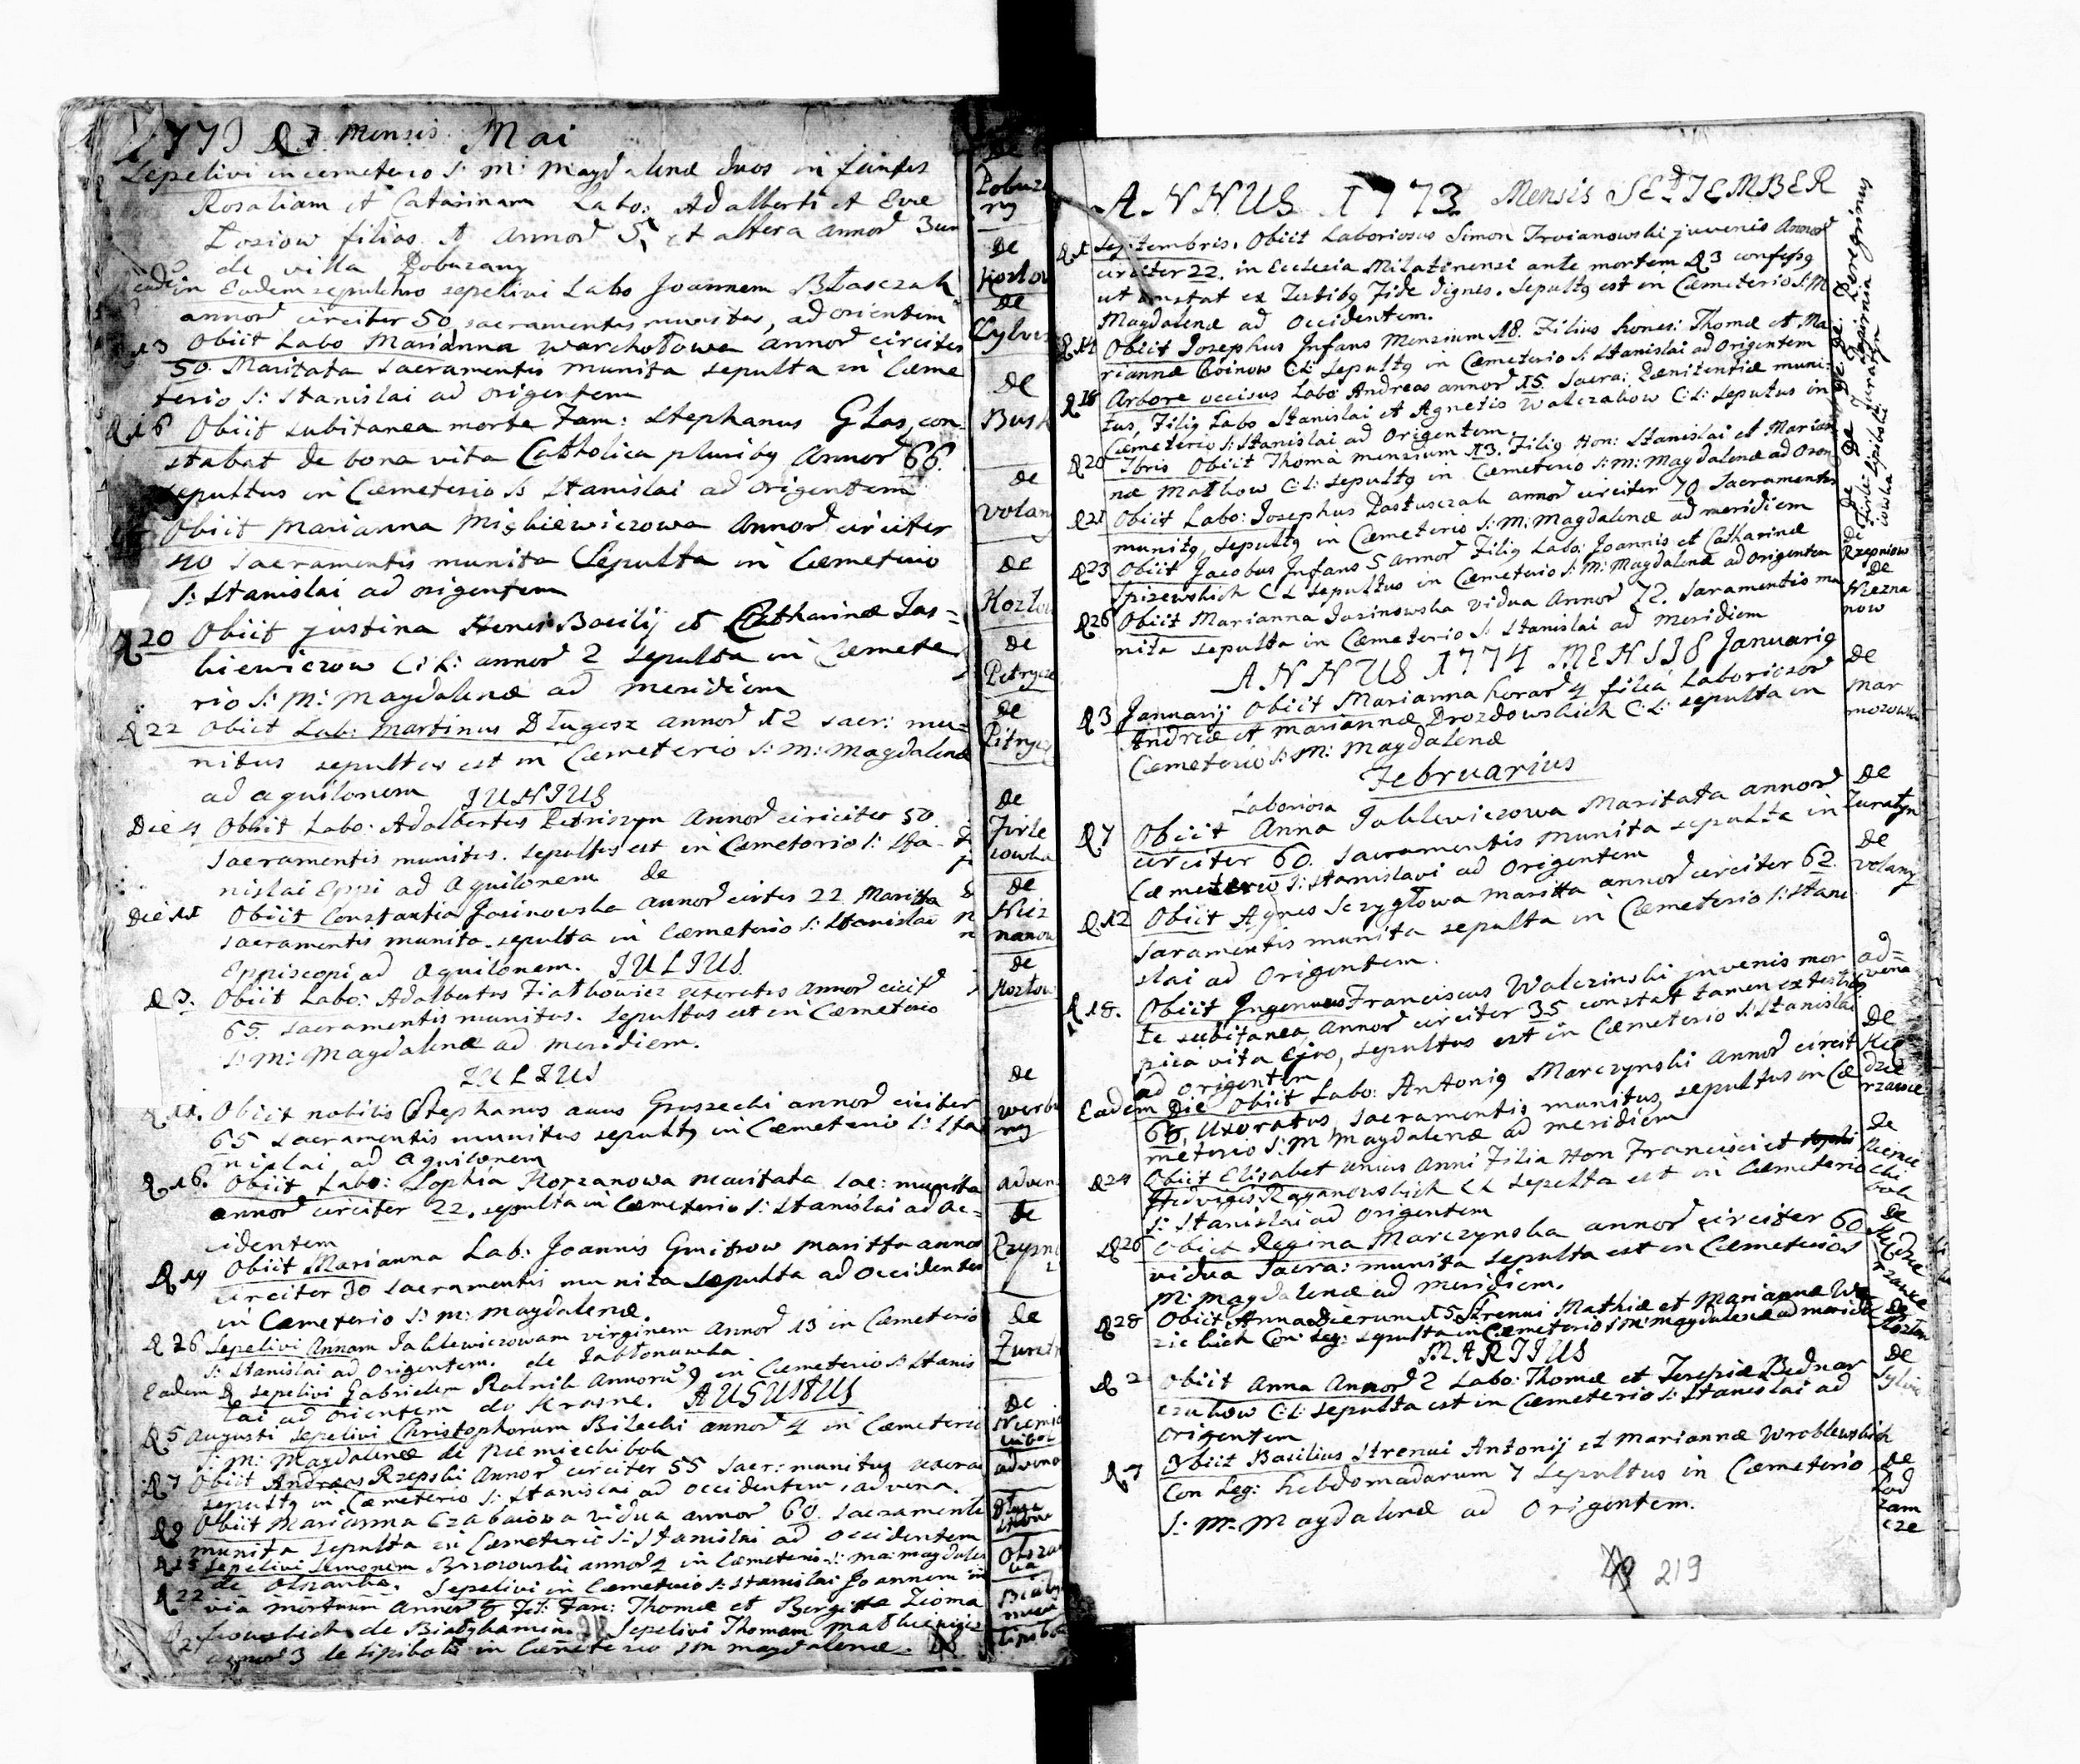 1773 D 7 Mensis Mai
Sepelivi in cemeterio S: M: Magdalenæ duos infantes
Rosaliam et Catarinam Labo: Adalberti et Evæ
filias annor 5 et altera annor 3um
de villa Pobuzany
in Eadem sepulchro sepelivi Labo Joannem Błasczak
annor circiter 50, sacramentis munitus, ad orientem
13 Obiit Labo Marianna Warchołowa annor circiter
50. Maritata sacramentis munita sepulta in Cæme
terio S: Stanislai ad origentem
D 16 Obiit subitanea morte Fam: Stephanus Glas, con-
stabat de bona vita Catholica pluribq Annor 66.
sepultus in Cæmeterio S: Stanislai ad origentem
Obiit Marianna Miskiewiczowa Annor circiter
40 sacramentis munita Sepulta in Cæmeterio
S: Stanislai ad origentem
D 20 Obiit justina Basilij et Catharinæ Jas=
kiewiczow C: L: annor 2 sepulta in Cæmete
rio S: M: Magdalenæ ad meridiem
D 22 Obiit Lab: Martinus Długosz annor 12 sacr: mu=
nitus sepultus est in Cæmeterio S: M: Magdalenæ
ad aquilonem JUNIUS
Die 4 Obiit Labo: Adalbertus Petriszyn Annor circiter 50.
sacramentis munitus. sepultus est in Cæmetorio S: Sta-
nislai Eppi ad Aquilonem de
Die 11 Obiit Constantia Jasinowska annor cirter 22 Maritta
sacramentis munita. sepulta in Cæmeterio S: Stanislai
Eppiscopi ad Aquilonem. JULIUS.
D 3. Obiit Labo: Adalbertus Fiałkowicz uxoratus annor circit
65. sacramentis munitus. sepultus est in Cæmeterio
S: M: Magdalenæ ad meridiem.
IULIUS
D 11. Obiit nobilis Stephanus Gruszecki annor circiter
65 sacramentis munitus sepultq in Cæmeterio S: Sta
nislai ad Aquilonem
D 16. Obiit Labo: Sophia Korzanowa maritata sac: munita
annor circiter 22. sepulta in Cæmeterio S: Stanislai ad Oc=
cidentem
D 19 Obiit Marianna Lab: Joannis Gmitrow maritta annor
circiter 30 sacramentis munita sepulta ad occidentem
in Cæmeterio S: M: Magdalenæ.
D 26 Sepelivi Annam Jablewiczowam virginem annor 13 in Cæmeterio
S: Stanislai ad origentem. de Jabłonowka
Eadem D sepelivi Gabrielem Ratnik Annorū 9 in Cæmeterio S: Stanis
lai ad orientem de Krasne. AUGUSTUS
D 5 Augusti sepelivi Christophorum Bilecki annor 4 in Cæmeterio
S: M: Magdalenæ de Niemieckibok
D 7 Obiit Andreas Rzepski annor circiter 55 sacr: munitus
sepultq in Cæmeterio S: Stanislai ad occidentem, advena.
D 9 Obiit Marianna Czabaiowa vidua annor 60. sacramentis
munita sepulta in Cæmeterio S: Stanislai ad occidentem
D 15 sepelivi Simonem Brzozowski annor 4 in Cæmeterio S: Ma: Magdalen
de Olszanka. Sepelivi in Cæmeterio S: Stanislai Joannem in
D 22 via mortuum annor 8 Fil: Fam: Thomæ et Bergitta Zioma
kowskich de Białykamin. Sepelivi Thomam
annor 3 de Lipibok in Cæmeterio S M Magdalenæ.
De
Pobuza
ny
de
Kozłow
de
Sylves
de
Busk
de
Volan
de
Kozłow
de
Petrycze
de
Pitrycz
de
Firle
iowka
de
Niez
nanow
de
Kozłow
de
Werbu
ny
adven
de
Rzepn
de
Zuratn
de
Niemie
ckibok
advena
Olszan
ka
Lipibok
ANNUS 1773 Mensis SEPTEMBER
D 1 Septembris. Obiit Laboriosus Simon Troianowski juvenis Annor
circiter 22. in Ecclesia Milatinensi ante mortem D 3 confessq
ut constat ex Testibq Fide dignis. Sepultq est in Cæmeterio S: M
Magdalenæ ad Occidentem.
D 11 Obiit Josephus Infans Mensium 18. Filius hones: Thomæ et Ma
riannæ Boinow C: L: sepultq in Cæmeterio S: Stanislai ad Origentem
D 18 Arbore occisus Labo Andreas annor 15 Sacra: Pænitentiæ muni-
tus, Filiq Labo Stanislai et Agnetis Walczakow C: L: sepultus in
Cæmeterio S: Stanislai ad Origentem.
D 20 7bris Obiit Thoma mensium 13. Filiq Hon: Stanislai et Marian
næ Małkow C: L: sepultq in Cæmeterio S: M: Magdalenæ ad
D 21 Obiit Labo: Josephus Pastusczak annor circiter 70 Sacramentis
munitq, sepultq in Cæmeterio S: M: Magdalenæ ad meridiem
D 23 Obiit Jacobus Infans 5 annor Filiq Labo: Joannis et Catharinæ
Spizewskich C L sepultus in Cæmeterio S: M: Magdalenæ ad Origentem
D 26 Obiit Marianna Jasinowska vidua Annor 72. Saramentis mu
nita sepulta in Cæmeterio S: Stanislai ad Meridiem
ANNUS 1774 MENSIS Januariq
D 3 Januarij Obiit Marianna horar 4 filia Laboriosor
Andreæ et Mariannæ Drozdowskich C: L: sepulta in
Cæmeterio S: M: Magdalenæ
Februarius
Laboriosa
D 7 Obiit Anna Jablewiczowa Maritata annor
circiter 60. Sacramentis munita sepulta in
Cæmeterio S: Stanislavi ad Origentem
D 12 Obiit Agnes Sczygłowa maritta annor circiter 62.
Saramentis munita sepulta in Cæmeterio S: Stani
slai ad Origentem.
D 18. Obiit Ingenuus Franciscus Walczinski juvenis mor
te subitanea annor circiter 35 constat tamen ex testibq
pia vita Ejus, sepultus est in Cæmeterio S: Stanislai
ad origentem
Eadem Die Obiit Labo: Antoniq Marczynski Annor circit
65, Uxoratus, sacramentis munitus, sepultus in Cæ
meterio S: M Magdalenæ ad meridiem
D 24 Obiit Elisabet unius Anni Filia Hon Francisci et
Hedvigis Raganowskich C L sepulta est in Cæmeterio
S: Stanislai ad Origentem
D 26 Obiit Regina Marczynska annor circiter 60
vidua Sacra: munita sepulta est in Cæmeterio S
M: Magdalenæ ad meridiem.
D 28 Obiit Anna Dierum 15 Strenui Mathiæ et Mariannæ
Con: Leg: sepulta in Cæmeterio S M: Magdalenæ ad meridie
MARTIUS
D 2 Obiit Anna Annor 2 Labo: Thomæ et Teresiæ Bednar
czukow C: L: sepulta est in Cæmeterio S: Stanislai ad
Origentem
D 7 Obiit Basilius Strenui Antonij et Mariannæ Wroblewskich
Con Leg: hebdomadarum 7 sepultus in Cæmeterio
S: M: Magdalenæ ad Origentem.
de
Rzepniow
De
Niezna
now
De
Mar
mozowka
De
Zuratyn
de
Volany
ad=
vena
De
Nie
dzie
rzance
De
Niemie
cki
bok
De
De
De
Sylvi
de
Pod
zam
cze
219